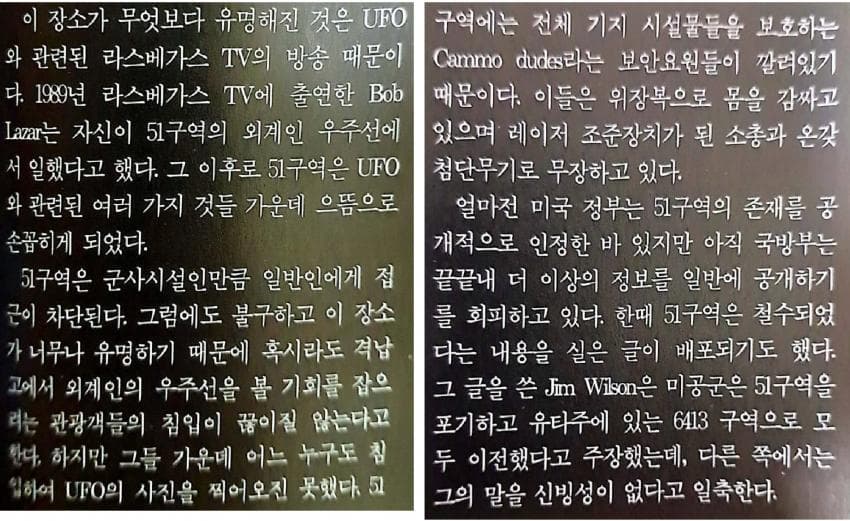 이 장소가 무엇보다 유명해진 것은 UFO
와 관련된 라스베가스 TV의 방송 때문이
다. 1989년 라스베가스 TV에 출연한 Bob
Lazar는 자신이 51구역의 외계인 우주선에
서 일했다고 했다. 그 이후로 51구역은 UFO
와 관련된 여러 가지 것들 가운데 으뜸으로
손꼽히게 되었다.
51구역은 군사시설인만큼 일반인에게 접
근이 차단된다. 그럼에도 불구하고 이 장소
가 너무나 유명하기 때문에 혹시라도 격납
고에서 외계인의 우주선을 볼 기회를 잡으
려는 관광객들의 침입이 끊이질 않는다고
한다. 하지만 그들 가운데 어느 누구도 침
입하여 UFO의 사진을 찍어오진 못했다. 51
구역에는 전체 기지 시설물들을 보호하는
Cammo dudes라는 보안요원들이 깔려있기
때문이다. 이들은 위장복으로 몸을 감싸고
있으며 레이저 조준장치가 된 소총과 온갖
첨단무기로 무장하고 있다.
얼마전 미국 정부는 51구역의 존재를 공
개적으로 인정한 바 있지만 아직 국방부는
끝끝내 더 이상의 정보를 일반에 공개하기
를 회피하고 있다. 한때 51구역은 철수되었
다는 내용을 실은 글이 배포되기도 했다.
그 글을 쓴 Jim Wilson은 미공군은 51구역을
포기하고 유타주에 있는 6413 구역으로 모
두 이전했다고 주장했는데, 다른 쪽에서는
그의 말을 신빙성이 없다고 일축한다.